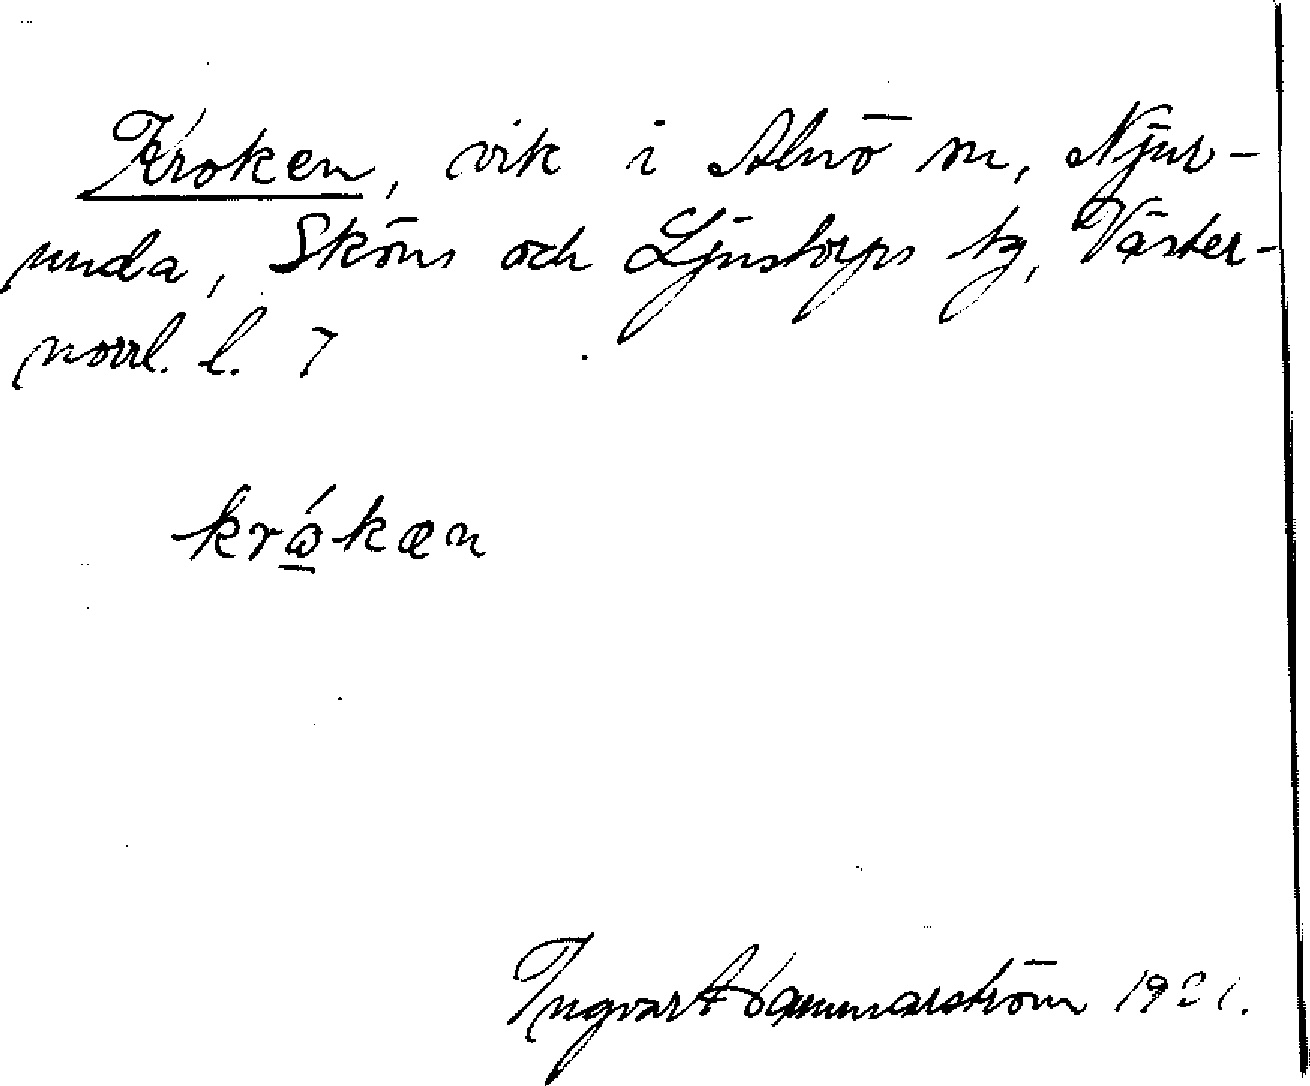 Kroken, vik i Alnö sn, Njur-
unda, Sköns och Ljustorps tg, Väster-
norrl. l. 7
krǻkæn
Ingvar Hammarström 1921.